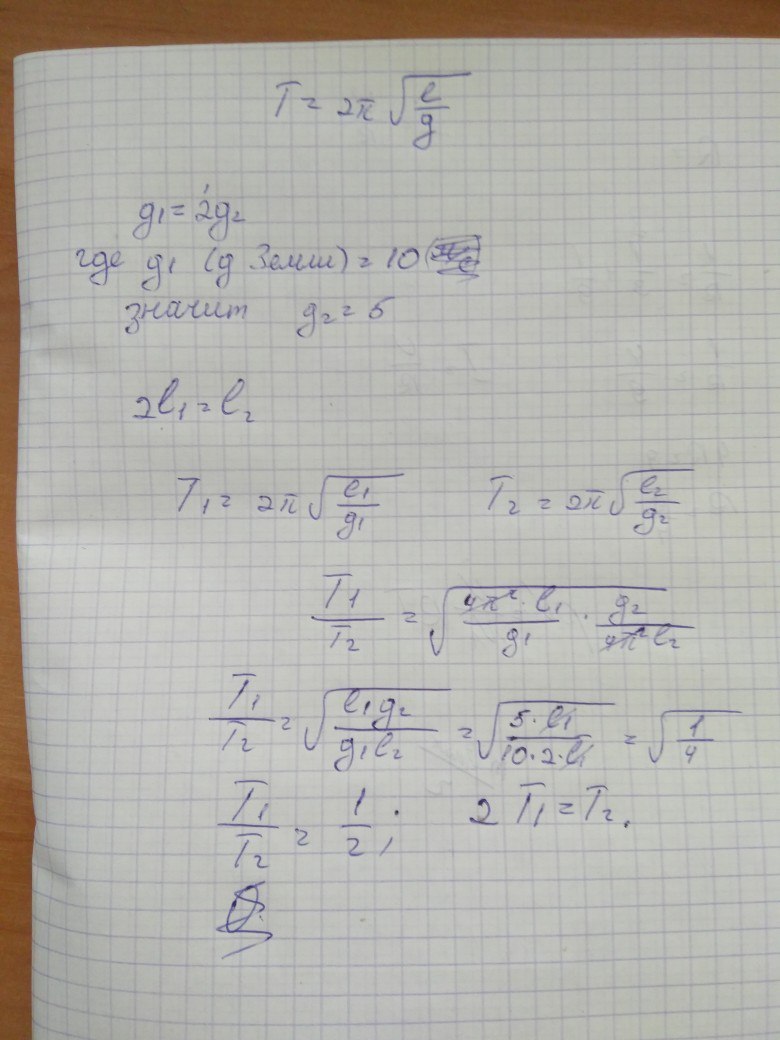 T = 2π √(l/g)
g₁ = 2g₂
где g₁ (g Земли) = 10
значит g₂ = 5
2l₁ = l₂
T₁ = 2π √(l₁/g₁) T₂ = 2π √(l₂/g₂)
T₁/T₂ = √(4π² · l₁/g₁ · g₂/4π² l₂)
T₁/T₂ = √(l₁g₂/g₁l₂) = √(5 · l₁/10 · 2 · l₁) = √(1/4)
T₁/T₂ = 1/2; 2 T₁ = T₂.